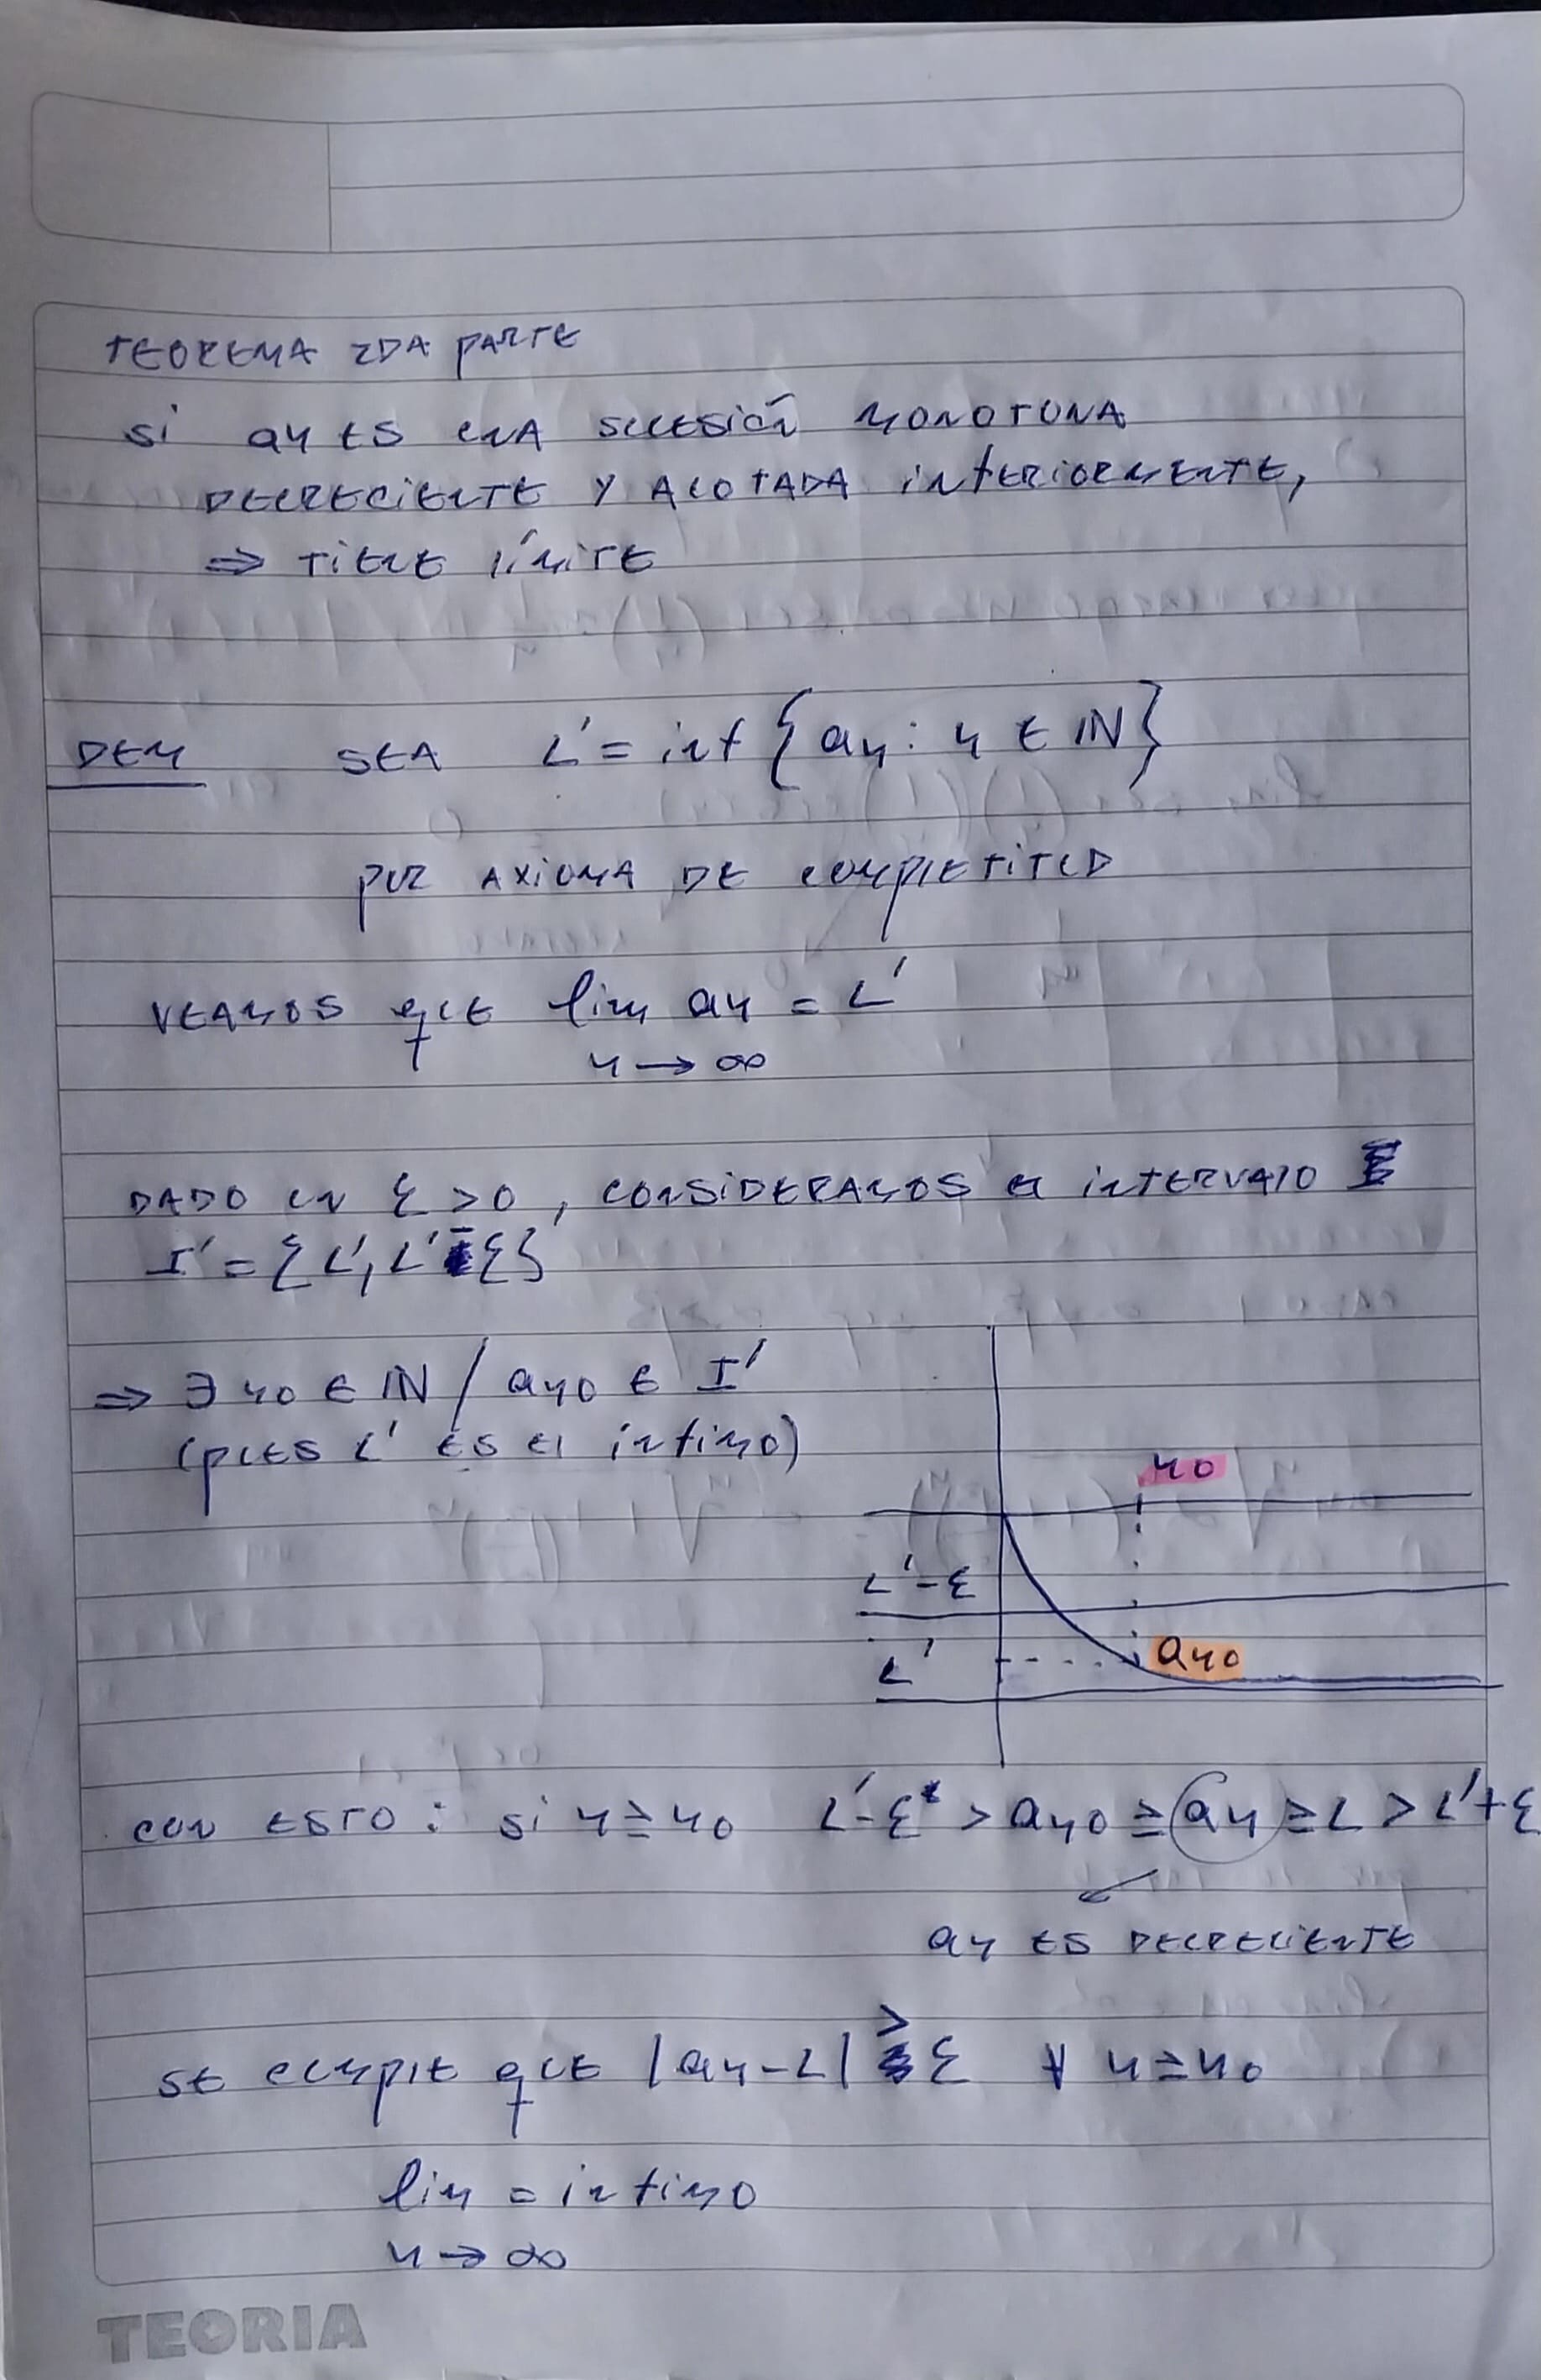 TEOREMA 2DA PARTE
Si an ES UNA SUCESIÓN MONOTONA
DECRECIENTE Y ACOTADA INFERIORMENTE,
⇒ TIENE LÍMITE
DEM SEA L' = inf {an : n ∈ IN}
POR AXIOMA DE COMPLETITUD
VEAMOS QUE lim an = L'
n → ∞
DADO UN ε > 0, CONSIDERAMOS EL INTERVALO
I' = {L', L' - ε}
⇒ ∃ n0 ∈ IN / an0 ∈ I'
(PUES L' ES EL ínfimo)
n0
L' - ε
L'
an0
CON ESTO: Si n ≥ n0 L' - ε > an0 ≥ an ≥ L > L' + ε
an ES DECRECIENTE
SE CUMPLE QUE |an - L| > ε ∀ n ≥ n0
lim = infimo
n → ∞
TEORIA